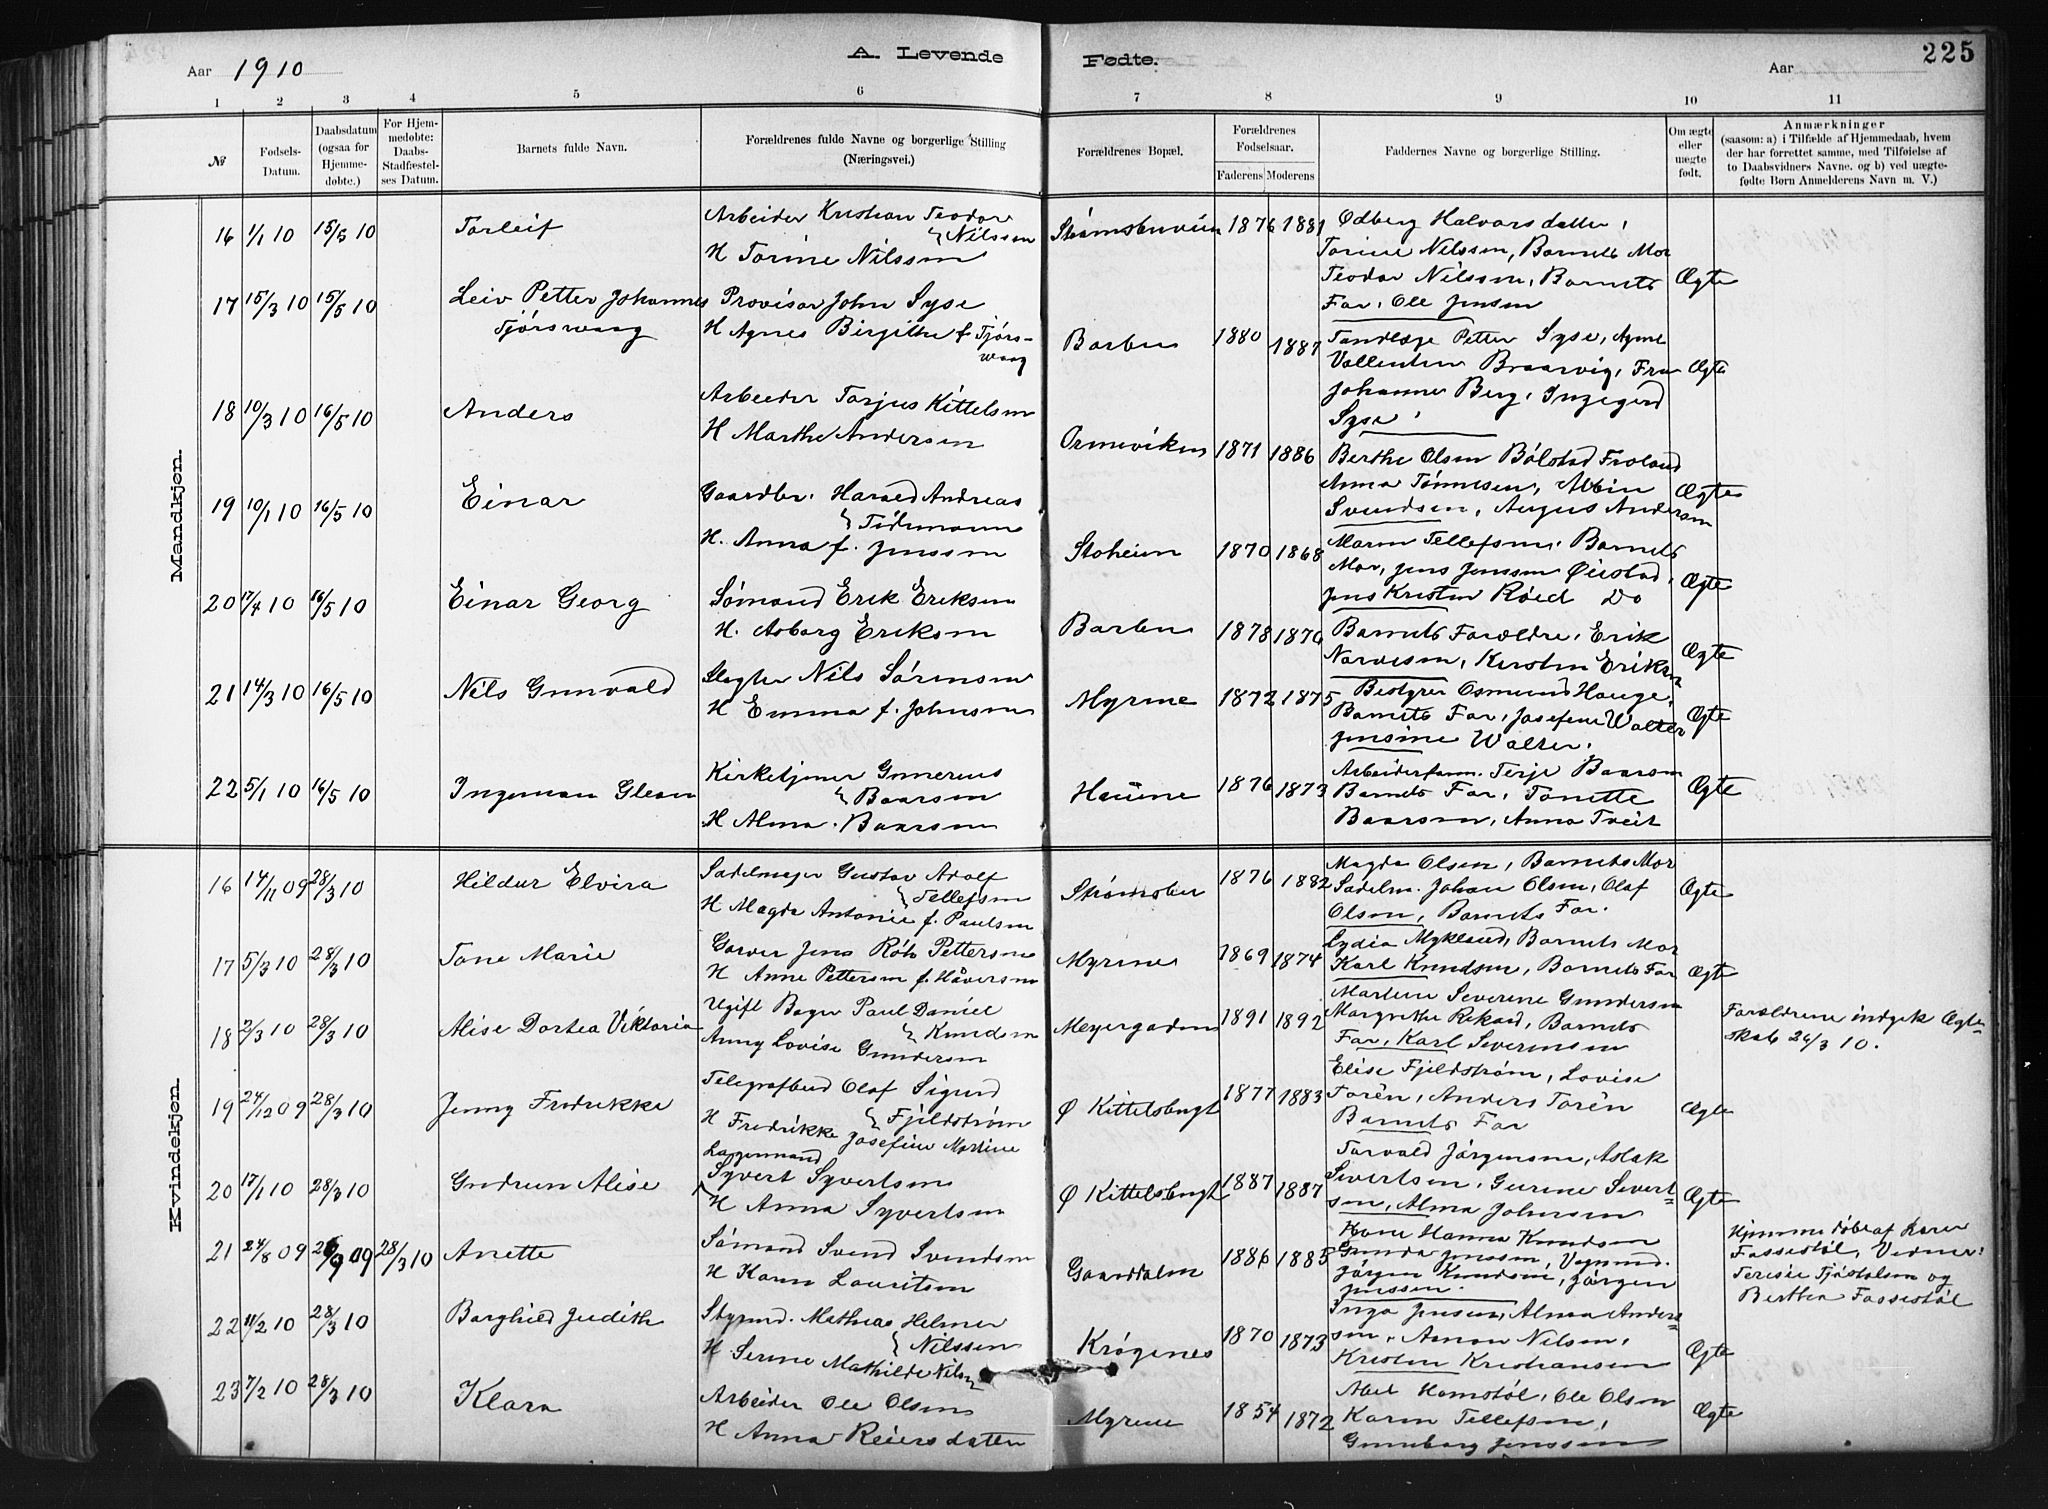 Aar 1910
A. Levende
Fødte.
Aar
225
1 2 3 4 5 6 7 8 9 10 11
№
Fødsels-
Datum.
Daabsdatum
(ogsaa for
Hjemme-
døbte.)
For Hjem-
medøbte:
Daabs-
Stadfæstel-
ses Datum.
Barnets fulde Navn.
Forældrenes fulde Navne og borgerlige Stilling
(Næringsvei.)
Forældrenes Bopæl.
Forældrenes
Fødselsaar.
Faderens Moderens
Faddernes Navne og borgerlige Stilling.
Om ægte
eller
uægte
født.
Anmærkninger
(saasom: a) i Tilfælde af Hjemmedaab, hvem
der har forrettet samme, med Tilføielse af
to Daabsvidners Navne. og b) ved uægte-
fødte Børn Anmelderens Navn m. V.)
Mandkjøn.
16 1/1 10 15/5 10
Torleif
Arbeider Kristian Teodor
Nilssen
H Torine Nilssen
1876 1881
Odberg Halvorsdatter,
Torine Nilssen, Barnets Mor
Teodor Nilssen, Barnets
Far, Ole Jensen
Ægte
17 15/3 10 15/5 10
Leiv Petter Johannes
Tjørswaag
Provisor John Syse
H Agnes Birgithe f. Tjørs-
waag
Barbu
1880 1887
Tandlæge Petter Syse, Agnes
Vallentin Braarvig, Fru
Johanne Berg, Ingegerd
Syse
Ægte
18 10/3 10 16/5 10
Anders
Arbeider Torjus Kittelsen
H Marthe Andersen
Ormeviken
1871 1886
Berthe Olsen Bölstad Froland
Anna Tönnesen, Albin
Svendsen, August Andersen
Ægte
19 10/1 10 16/5 10
Einar
Gaardbr. Harald Andreas
Tidemann
H. Anna f. Jenssen
Stoheim
1870 1868
Maren Tellefsen, Barnets
Mor, Jens Jenssen Öiestad,
Jens Kristen Röed Do
Ægte
20 17/4 10 16/5 10
Einar Georg
Sømand Erik Eriksen
H. Asborg Eriksen
Barbu
1878 1870
Barnets Forældre, Erik
Narvesen, Kirsten Eriksen
Ægte
21 14/3 10 16/5 10
Nils Gunvald
Slagter Nils Sørensen
H Emma f. Johnsen
Myrene
1872 1875
Bestyrer Osmund Hauge,
Barnets Far, Josefine Walter
Jensine Walter.
Ægte
22 5/1 10 16/5 10
Ingeman Glenn
Kirketjener Gunerius
Baarsen
H Alma Baarsen
1876 1873
Arbeiderform. Terje Baarsen
Barnets Far, Tonette
Baarsen, Anna Tveit
Ægte
Kvindekjøn.
16 14/11 09 28/3 10
Hildur Elvira
Sadelmager Gustav Adolf
Tellefsen
H Magda Antonie f. Paulsen
Strømsbu
1876 1882
Magda Olsen, Barnets Mor
Sadelm. Johan Olsen, Olaf
Olsen, Barnets Far.
Ægte
17 5/3 10 28/3 10
Tone Marie
Garver Jens Röh Pettersen
H Anne Pettersen f. Håversen
Myrene
1869 1874
Lydia Mykland, Barnets Mor
Karl Knudsen, Barnets Far
Ægte
18 2/3 10 28/3 10
Alise Dortea Viktoria
Ugift Bager Paul Daniel
Knudsen
Anny Lovise Gundersen
Meyergaden
1891 1892
Martine Severine Gundersen
Margrethe Rekard, Barnets
Far, Karl Severinsen
Forældrene indgik Ægte-
skab 26/3 10.
19 24/12 09 28/3 10
Jenny Fredrikke
Telegrafbud Olaf Sigurd
Fjeldstrøm
H Fredrikke Josefine Martine
Langemand
Ø Kittelsbugt
1877 1883
Elise Fjeldstrøm, Lovise
Torén, Anders Torén
Barnets Far
Ægte
20 17/1 10 28/3 10
Gudrun Alise
Syvert Syvertsen
H Anna Syvertsen
Ø Kittelsbugt
1887 1887
Torvald Jørgensen, Aslak
Sivertsen, Gurine Sivert-
sen, Alma Johnsen
Ægte
21 24/8 09 26/9 09 28/3 10
Anette
Sømand Svend Svendsen
H Karen Lauritsen
Gaarddalen
1886 1885
Kone Hanna Knudsen
Gunda Jenssen, Vognmd.
Jørgen Knudsen, Jørgen
Jenssen.
Hjemmedøbt af Karen
Fossestøl, Vidner:
Terese Tjøstolsen og
Berthea Fossestøl
22 11/2 10 28/3 10
Borghild Judith
Styrmd. Mathias Helmer
Nilssen
H Serine Mathilde Nilsen
Krøgenes
1870 1873
Inga Jensen, Alma Anders-
sen, Amon Nilsen,
Kristen Kristiansen
Ægte
23 7/2 10 28/3 10
Klara
Arbeider Ole Olsen
H Anna Reiersdatter
Myrene
1854 1872
Abel Homstøl, Ole Olsen
Karen Tellefsen,
Gunnborg Jenssen
Ægte